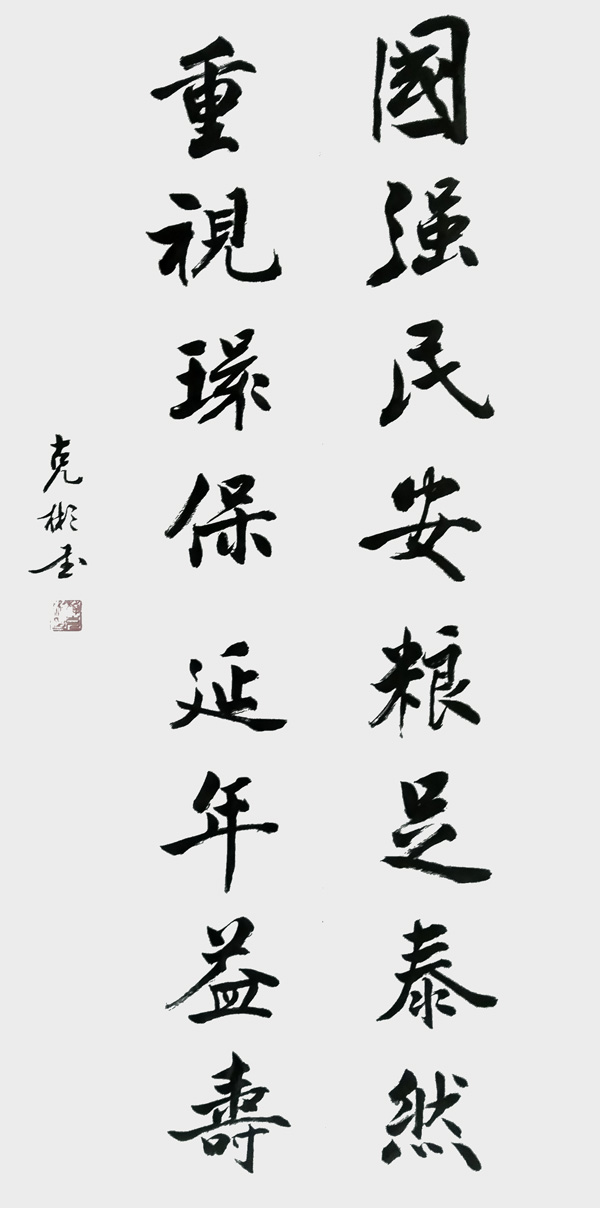 國强民安粮足泰然
重視環保延年益壽
克彬书